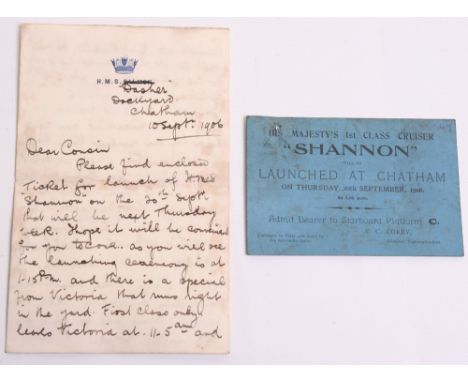 H.M.S.
"Dasher"
Dockyard
Chatham
10 Sept. 1906
Dear Cousin
Please find enclosed
Ticket for launch of HMS
Shannon on the 20th Sept
that will be next Thursday
week. I hope it will be convenient
for you to come. as you will see
the launching ceremony is at
1-15 P.m. and there is a special
from Victoria that runs right
in the yard. First Class only
leaves Victoria at 11.5 am and
HIS MAJESTY'S 1st CLASS CRUISER
"SHANNON"
WILL BE
LAUNCHED AT CHATHAM
ON THURSDAY, 20th SEPTEMBER, 1906,
At 1.15 p.m.
Admit Bearer to Starboard Platform C.